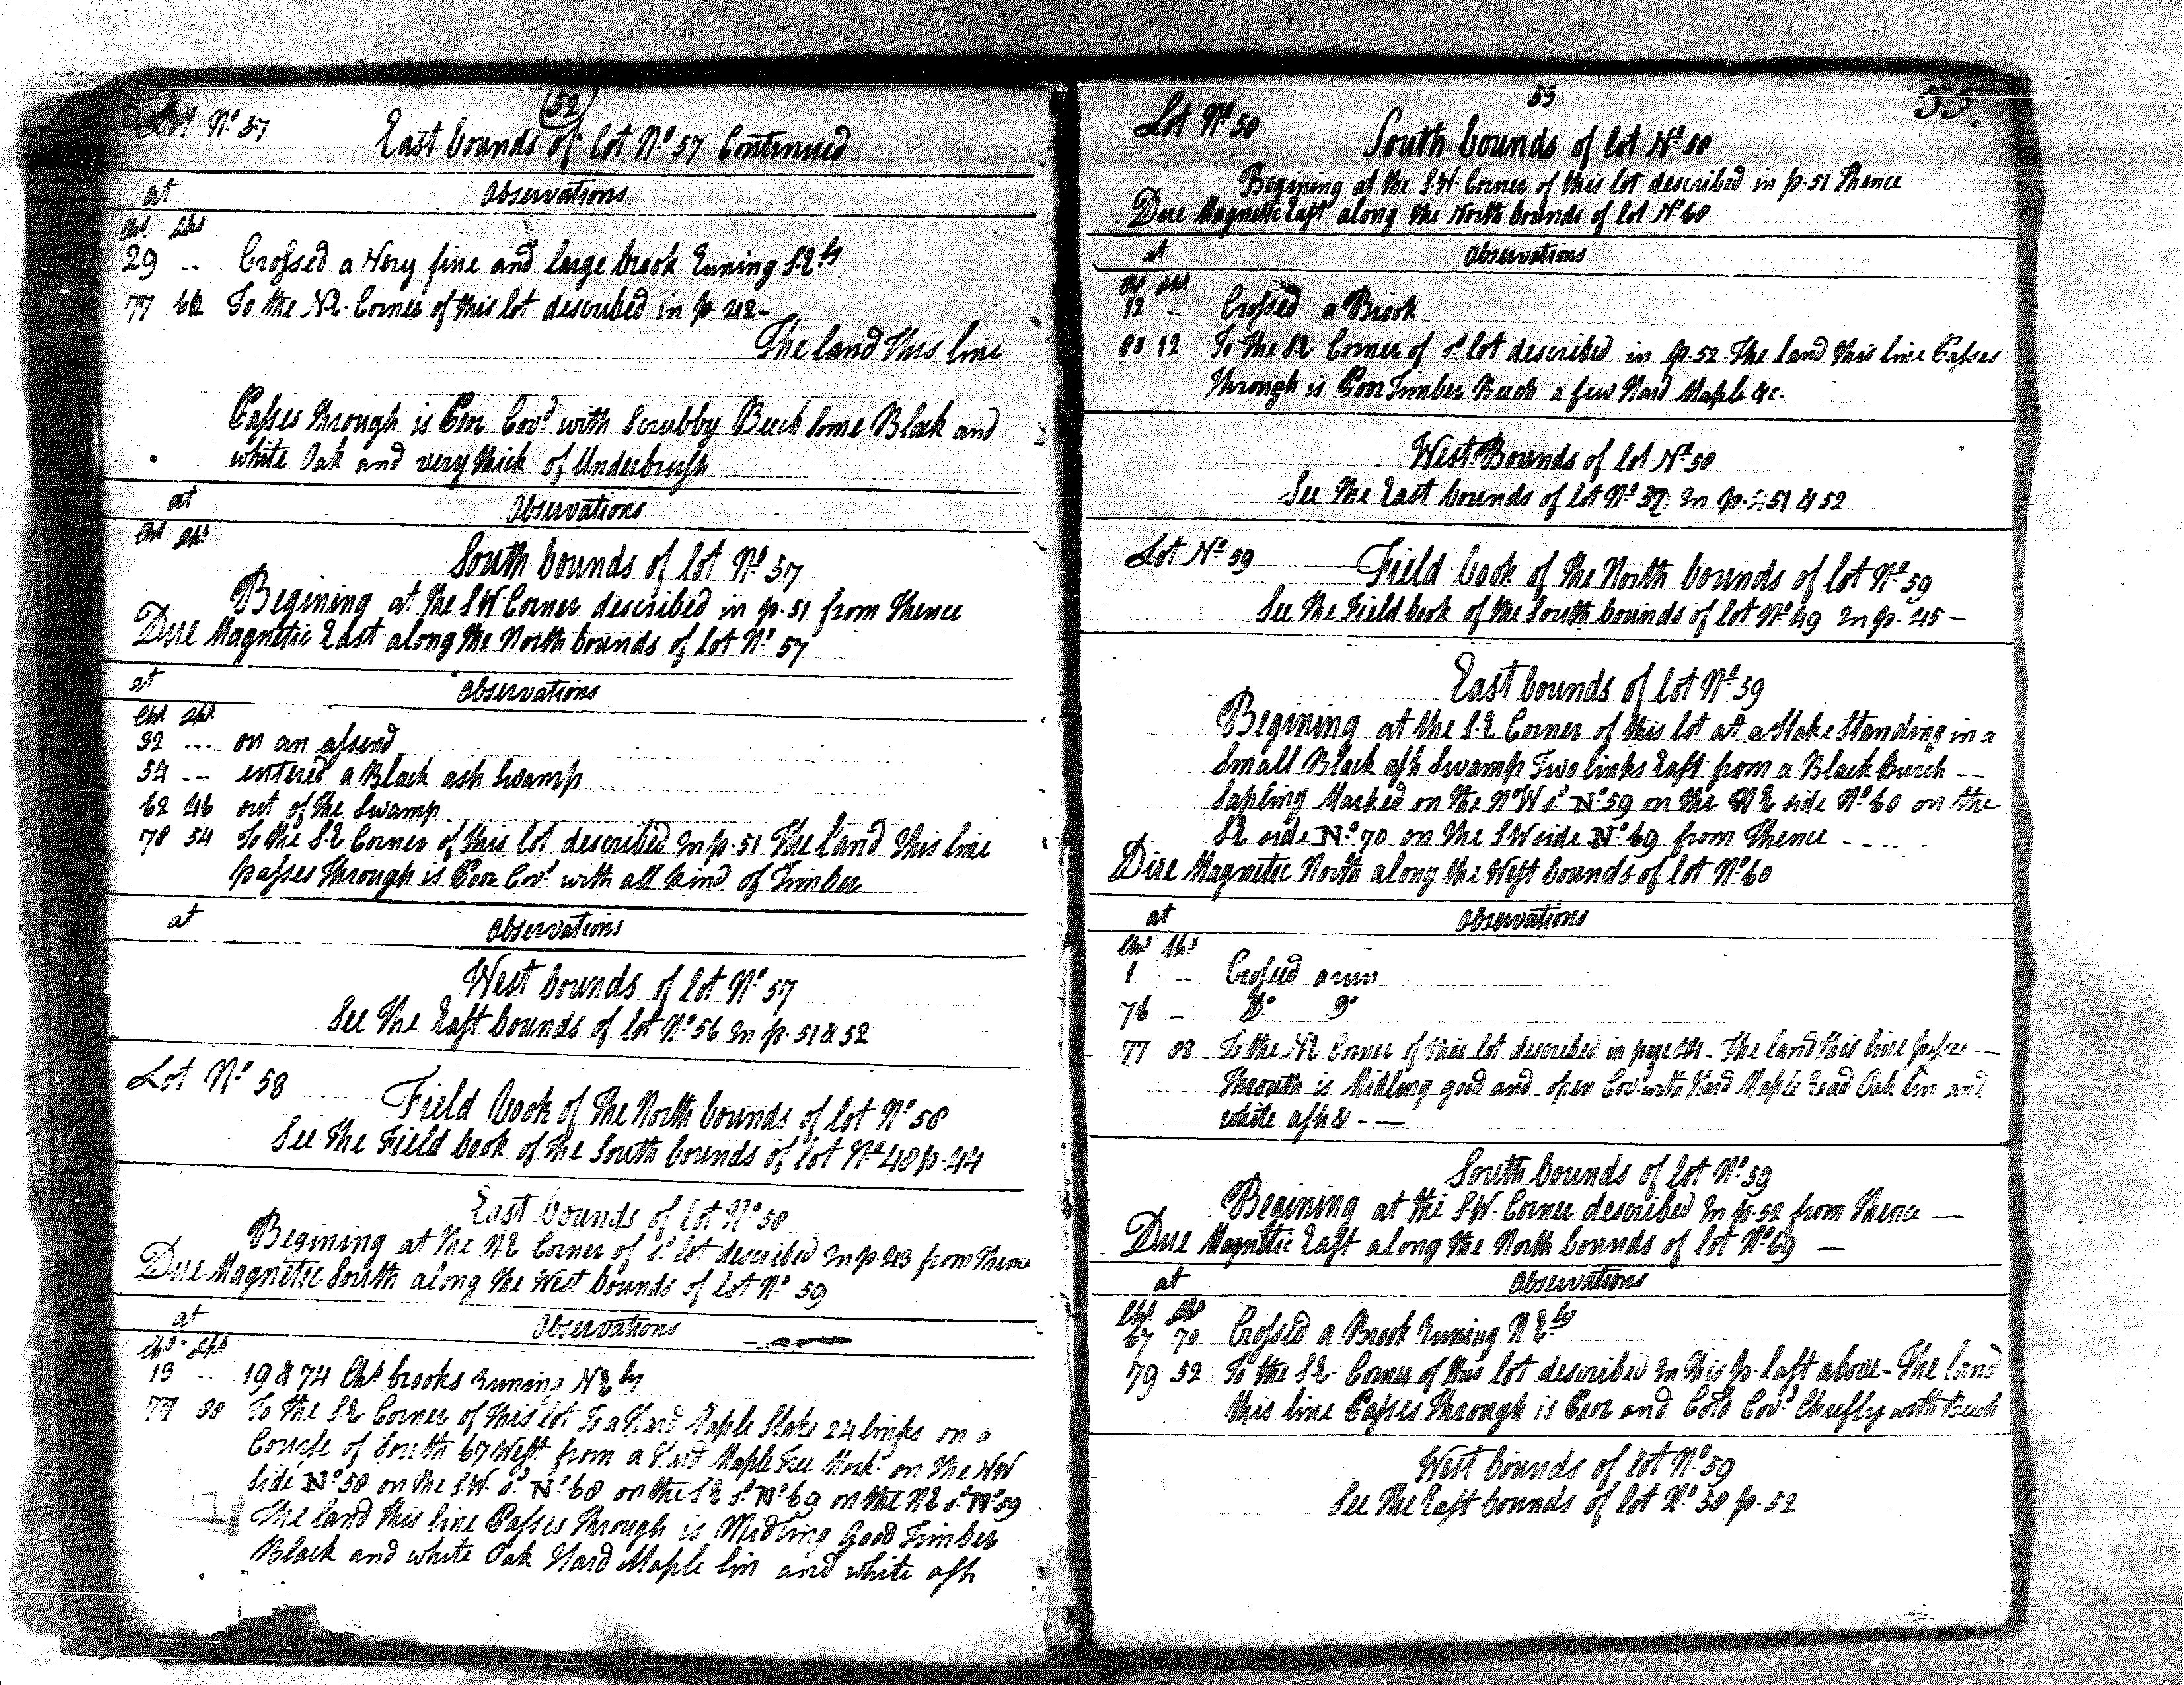 Lot No 57
(52)
East bounds of lot No 57 Continued
at Observations
Chs Lks
29 .. Crossed a Very fine and large brook Runing S.Ely
77 62 To the N.E. Corner of this lot described in p. 42 -
The land this line
Passes through is Poor Covd with Scrubby Beech Some Black and
white Oak and very thick of Underbrush
at Observations
Chs Lks
South bounds of lot No 57
Begining at the S.W Corner described in p. 51 from thence
Due Magnetic East along the North bounds of lot No 57
at Observations
Chs Lks
32 ... on an assend
54 ... entered a Black ash Swamp
62 46 out of the Swamp
78 54 To the S.E Corner of this lot described In p. 51 The land this line
passes through is Poor Covd with all kind of Timber
at Observations
West bounds of lot No 57
See the East bounds of lot No 56 In p. 51 & 52
Lot No 58
Field book of the North bounds of lot No 58
See the Field book of the South bounds of lot No 48 p. 44
East bounds of lot No 58
Begining at the N.E Corner of sd lot described In p. 43 from thence
Due Magnetic South along the West bounds of lot No 59
at Observations
Chs Lks
13 .. 19 & 74 Chs brooks runing N Ely
77 80 To the S.E Corner of this lot To a Hard Maple Stake 24 links on a
Course of South 67 West from a Hard Maple Tree Markd on the NW
side No 58 on the S.W. sd No 68 on the S E sd No 69 on the N E sd No 59
The land this line Passes through is Midling Good Timber
Black and white Oak Hard Maple lin and white ash
53
55.
Lot No 58
South bounds of lot No 58
Begining at the S.W. Corner of this lot described in p. 51 Thence
Due Magnetic East along the North bounds of lot No 68
at Observations
Chs Lks
12 .. Crossed a Brook
80 12 To the S.E Corner of sd lot described in p. 52 The land this line Passes
through is Poor Timber Beech a few Hard Maple &c.
West Bounds of lot No 58
See the East bounds of lot No 57 In p. 51 & 52
Lot No 59
Field book of the North bounds of lot No 59
See the Field book of the South bounds of lot No 49 In p. 45 -
East bounds of lot No 59
Begining at the S.E Corner of this lot at a Stake Standing in a
Small Black ash Swamp Two links East from a Black Burch --
Sapling Marked on the N W sd No 59 on the N E side No 60 on the
S.E side No 70 on the S W side No 69 from Thence - - - -
Due Magnetic North along the West bounds of lot No 60
at Observations
Chs Lks
1 .. Crossed a run
76 - Do Do
77 88 To the N E Corner of this lot described in page - The land this line passes --
Through is Midling good and open Covd with Hard Maple Read Oak lin and
white ash & - -
South bounds of lot No 59
Begining at the S.W. Corner described In p. 52 from thence -
Due Magnetic East along the North bounds of lot No 69 -
at Observations
Chs Lks
67 70 Crossed a Brook Runing N Ely
79 52 To the S.E. Corner of this lot described In this p. last above - The land
this line Passes through is Poor and Cold Covd Cheefly with Beech
West bounds of lot No 59
See the East bounds of lot No 58 p. 52